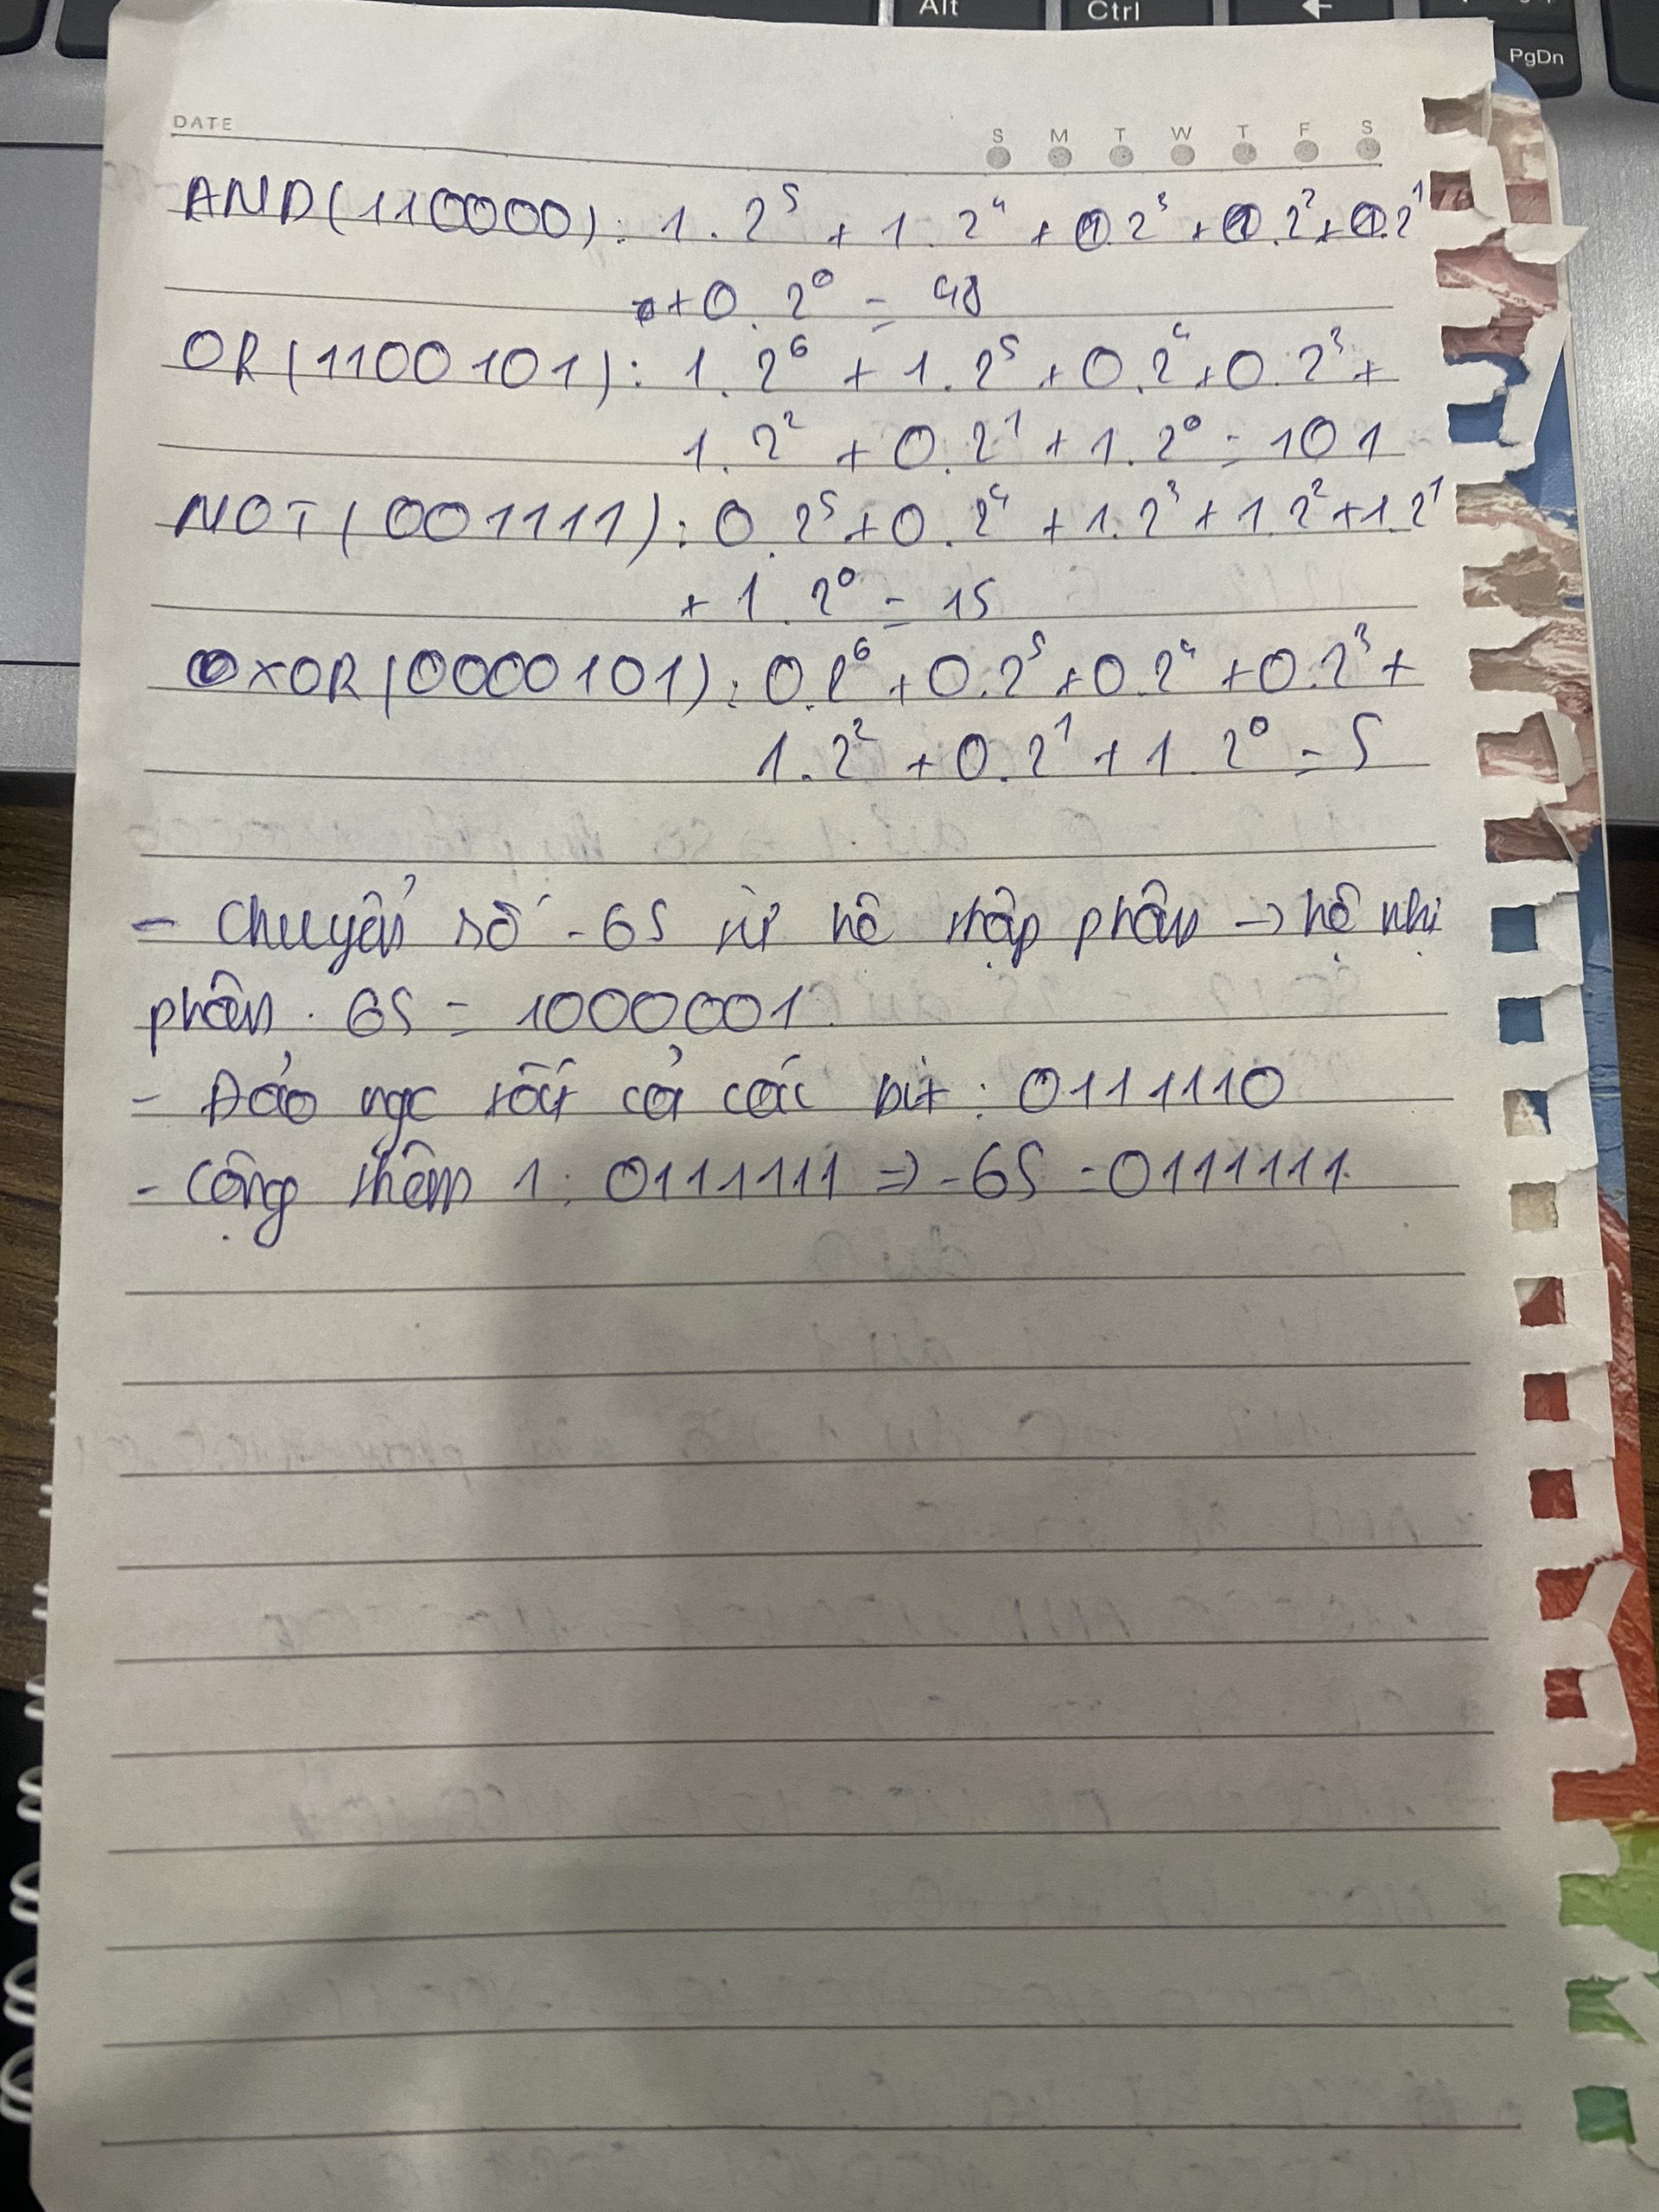 Alt Ctrl ←
PgDn
DATE S M T W T F S
AND(110000): 1.2⁵ + 1.2⁴ + 0.2³ + 0.2² + 0.2¹
+ 0.2⁰ = 48
OR(1100101): 1.2⁶ + 1.2⁵ + 0.2⁴ + 0.2³ +
1.2² + 0.2¹ + 1.2⁰ = 101
NOT(001111): 0.2⁵ + 0.2⁴ + 1.2³ + 1.2² + 1.2¹
+ 1.2⁰ = 15
XOR(0000101): 0.2⁶ + 0.2⁵ + 0.2⁴ + 0.2³ +
1.2² + 0.2¹ + 1.2⁰ = 5
- Chuyển số -65 từ hệ thập phân → hệ nhị
phân. 65 = 1000001.
- Đảo ngc tất cả các bit: 0111110
- Cộng thêm 1: 0111111 => -65 = 0111111.